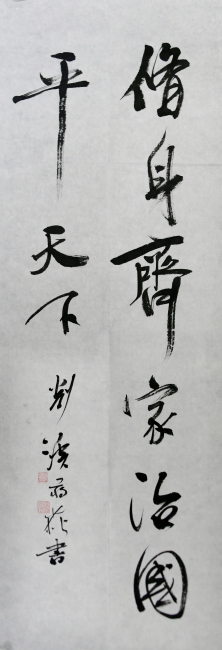 脩身齊家治國
平天下
書